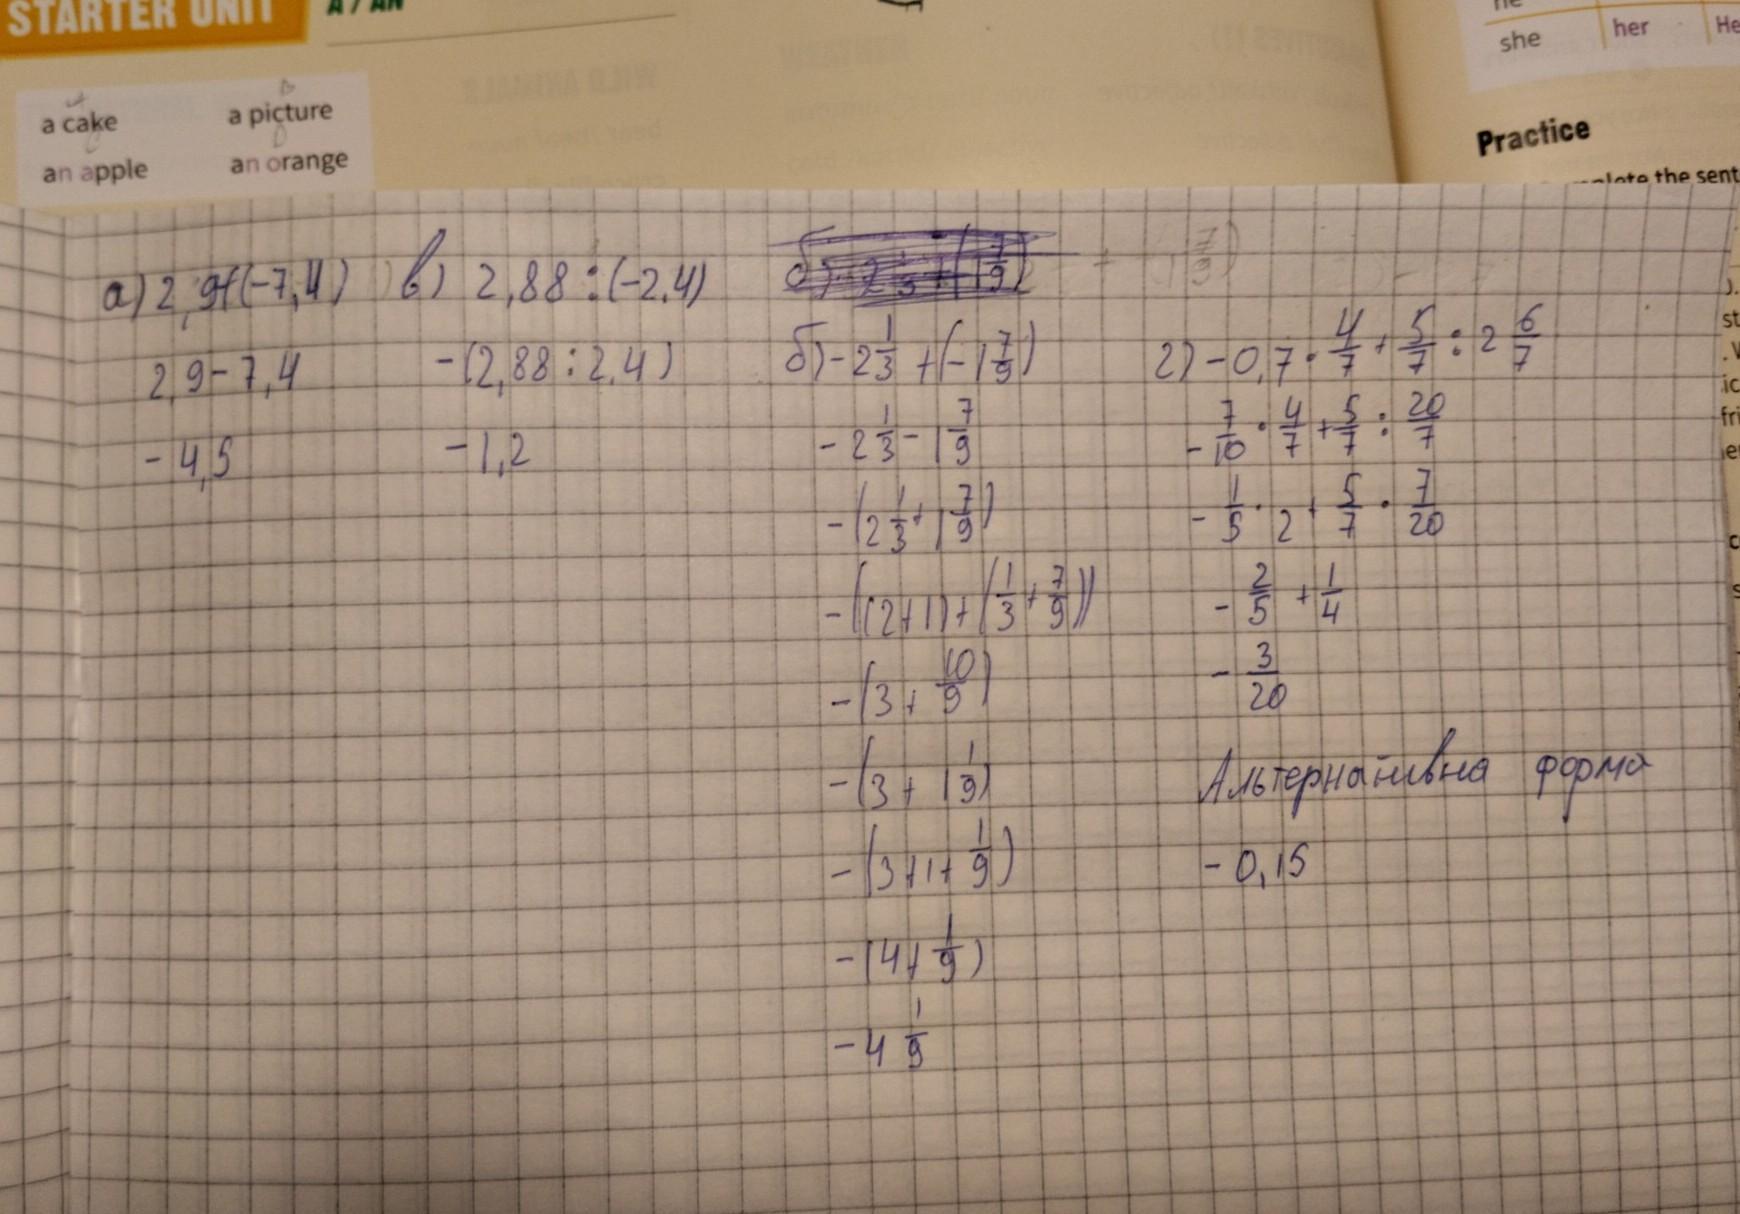 STARTER UNIT
A / AN
a cake a picture
an apple an orange
he
she her He
Practice
the sent
а) 2,9+(-7,4)
2,9-7,4
-4,5
в) 2,88:(-2,4)
-(2,88:2,4)
-1,2
б) -2 1/3 + (-1 7/9)
-2 1/3 - 1 7/9
-(2 1/3 + 1 7/9)
-((2+1)+(1/3+7/9))
-(3+10/9)
-(3+1 1/9)
-(3+1+1/9)
-(4+1/9)
-4 1/9
г) -0,7·4/7+5/7:2 6/7
-7/10·4/7+5/7:20/7
-1/5·2+5/7·7/20
-2/5+1/4
-3/20
Альтернативна форма
-0,15